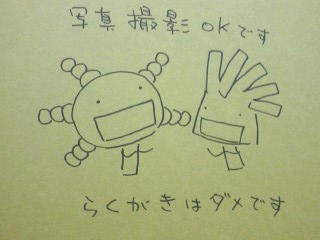 写真撮影okです
らくがきはダメです